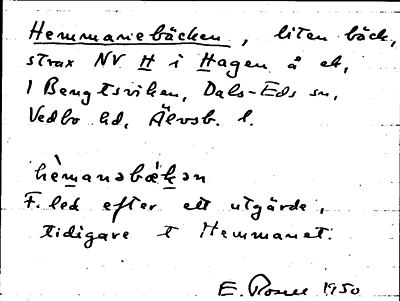 Hemmansbäcken, liten bäck,
strax NV H i Hagen å ek,
1 Bengtsviken, Dals-Eds sn,
Vedbo hd, Älvsb. l.
hèmanəbæ̀kən
F. led efter ett utgärde,
tidigare t Hemmanet.
E. Rosell 1950